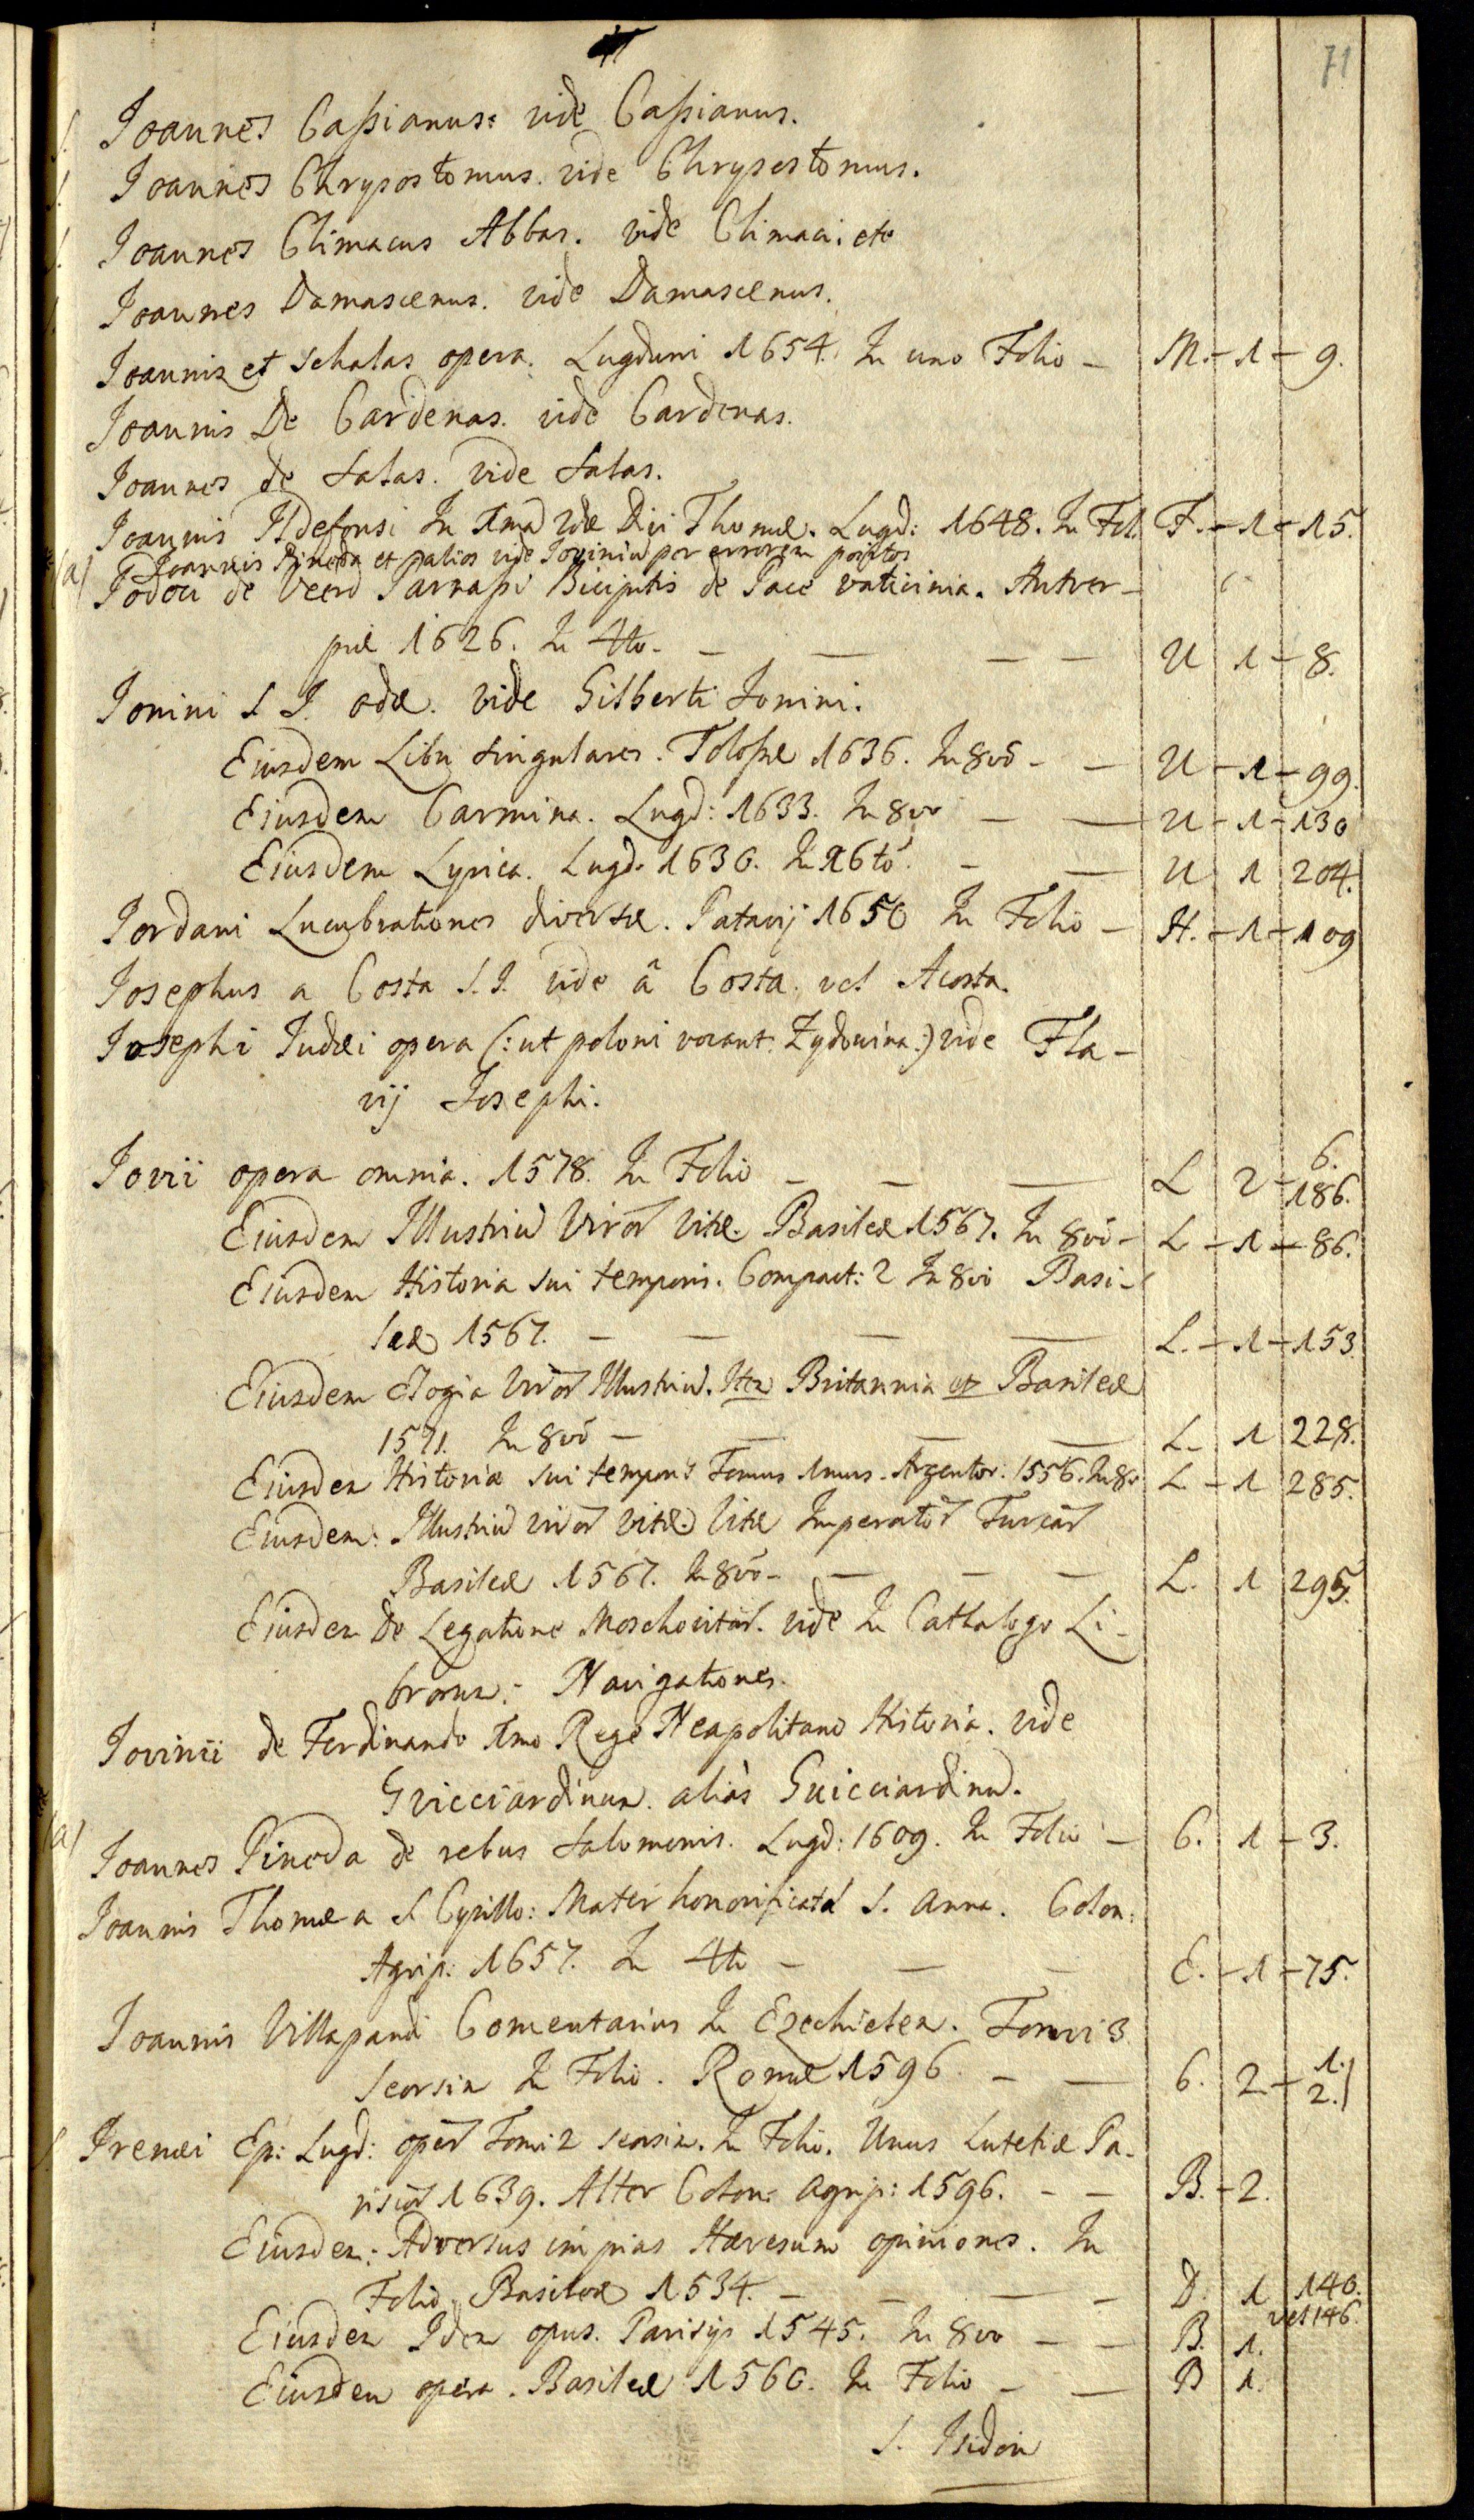 71
S. Joannes Caſsianus: vide Caſsianus.
S. Joannes Chrysostomus. vide Chrysostomus.
S. Joannes Climacus Abbas. vide Climaci etc
S. Joannes Damascenus. vide Damascenus.
Joannis et Schalas opera. Lugduni 1654. In uno Folio — M. — 1 — 9.
Joannis De Cardenas. vide Cardenas.
Joannes de Salas. vide Salas.
Joannis Ildefonsi In 1mã 2dæ Divi Thomæ. Lugd: 1648. In Fol. F. — 1 — 15.
(a) Joannis Pineda et alios vide Joviniũ per errorem positos
Jodoci de Weerd Parnaſsi Bicipitis de Pace vaticinia. Antver-
piæ 1626. In 4to. — — — — U 1 — 8.
Jonini S. J. odæ. vide Gilberti Jonini.
Eiusdem Libri singulares. Tolosæ 1636. In 8vo — — U — 1 — 99.
Eiusdem Carmina. Lugd: 1633. In 8vo — — U — 1 — 130
Eiusdem Lyrica. Lugd. 1630. In 16to. — — U 1 204.
Jordani Lucubrationes diversæ. Patavij 1650 In Folio — H. — 1 — 109
Josephus a Costa S. J. vide â Costa. vel Acosta.
Josephi Judæi opera (: ut poloni vocant. Zydowina:) vide Fla-
vij Josephi.
Jovii opera omnia. 1578. In Folio — — — L 2 — 6. 186.
Eiusdem Illustriũ Viror̃ Vitæ. Basileæ 1567. In 8vo — L — 1 — 86.
Eiusdem Historia sui temporis. Compact: 2 In 8vo Basi-
leæ 1567. — — — — L. — 1 — 153.
Eiusdem Elogia Viror̃ Illustriũ. Itẽ Britannia et Basileæ
1571. In 8vo — — — — L. 1 228.
Eiusdem Historiæ sui temporis Tomus 1mus. Argentor: 1556. In 8o L — 1 285.
Eiusdem: Illustriũ viror̃ vitæ. Vitæ Imperator̃ Turcar̃
Basileæ 1567. In 8vo — — — — L. 1 295.
Eiusdem De Legatione Moschovitar̃. vide In Cathalogo Li-
brorum: Navigationes.
Jovinii de Ferdinando 1mo Rege Neapolitano Historia. vide
Gvicciardinum. aliàs Guicciardinũ.
(a) Joannes Pineda de rebus Salomonis. Lugd: 1609. In Folio — C. 1 — 3.
Joannis Thomæ a S. Cyrillo: Mater honorificata S. Anna. Colon:
Agrip: 1657. In 4to — — — E. — 1 — 75.
Joannis Villapandi Comentarius In Ezechielem. Tomi 3
Seorsim In Folio. Romæ 1596. — — C. 2 — 1. 2.)
S. Irenæi Ep: Lugd: oper̃ Tomi 2 seorsim. In Folio. Unus Lutetiæ Pa-
risior̃ 1639. Alter Colon: Agrip: 1596. — — B. — 2.
Eiusdem: Adversus impias Hæresum opiniones. In
Folio Basileæ 1534. — — — — D. 1 140.
vel 146.
Eiusdem Idem opus. Parisijs 1545. In 8vo — — B. 1.
Eiusdem opera. Basileæ 1560. In Folio — — B 1.
S. Isidori